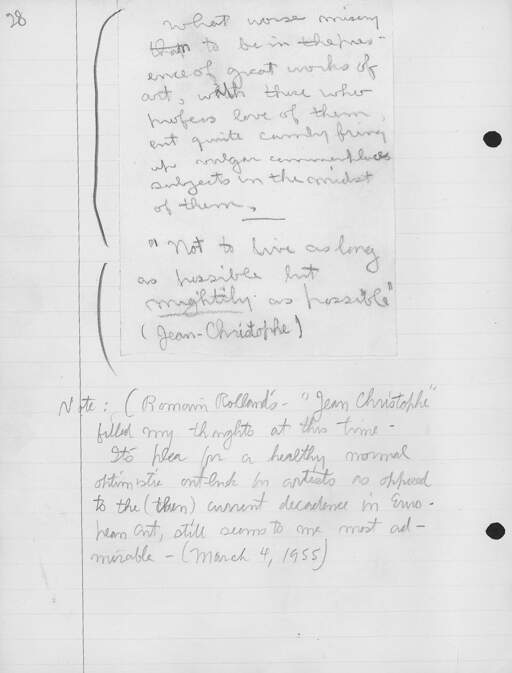 28
What worse misery
than to be in the pres-
ence of great works of
art, with those who
profess love of them,
quite calmly bring
up vulgar commonplaces
subjects in the midst
of them.
"Not to live as long
as possible but
mightily as possible"
(Jean-Christophe)
Note: (Romain Rolland's - "Jean Christophe"
filled my thoughts at this time -
Its plea for a healthy normal
optimistic outlook in artists as opposed
to the (then) current decadence in Euro-
pean Art, still seems to me most ad-
mirable - (March 4, 1955)